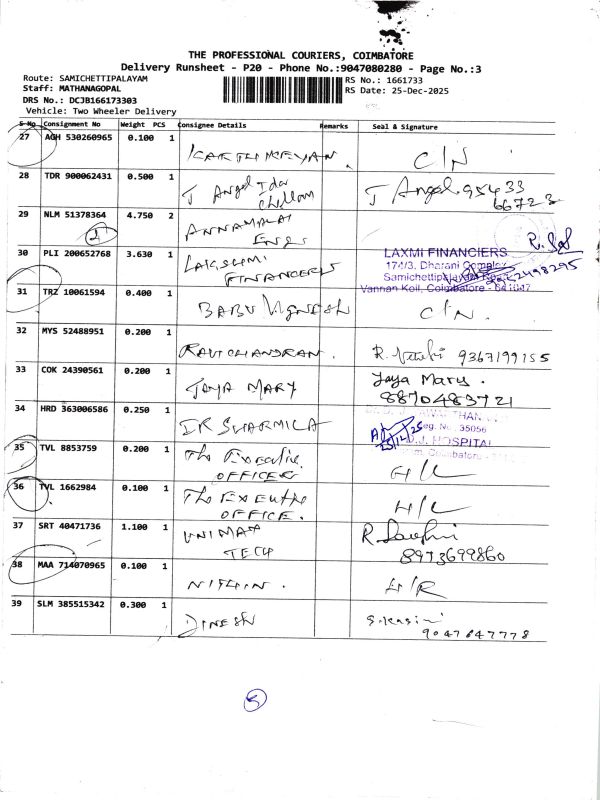 THE PROFESSIONAL COURIERS, COIMBATORE
Delivery Runsheet - P20 - Phone No.:9047080280 - Page No.:3
Route: SAMICHETTIPALAYAM
RS No.: 1661733
Staff: MATHANAGOPAL
RS Date: 25-Dec-2025
DRS No.: DCJB166173303
Vehicle: Two Wheeler Delivery
S No Consignment No Weight PCS Consignee Details Remarks Seal & Signature
27 AGH 530260965 0.100 1 KARTHIKEYAN. C/N
28 TDR 900062431 0.500 1 J Angel Ida J Angel. 95433
Chellam 66723
29 NLM 51378364 4.750 2 ANNAMALAI
2
30 PLI 200652768 3.630 1 LAKSHMI
FINANCIERS
LAXMI FINANCIERS
174/3, Dharani Complex
Samichettipalayam
Vannan Koil, Coimbatore - 641047
31 TRZ 10061594 0.400 1 BABU VIGNESH C/N.
32 MYS 52488951 0.200 1 RAVICHANDRAN. R. 9367199155
33 COK 24390561 0.200 1 JAYA MARY Jaya Mary.
8870483721
34 HRD 363006586 0.250 1 DR SHARMILA
Reg. No. 35056
25/12/25
D.J. HOSPITAL
Coimbatore
35 TVL 8853759 0.200 1 The Executive
OFFICER H/L
36 TVL 1662984 0.100 1 The Executive
OFFICE. H/L
37 SRT 40471736 1.100 1 UNIMAX
TECH 8973699860
38 MAA 714070965 0.100 1 NITHIN. H/R
39 SLM 385515342 0.300 1 DINESH S.Kasini
9047847778
5